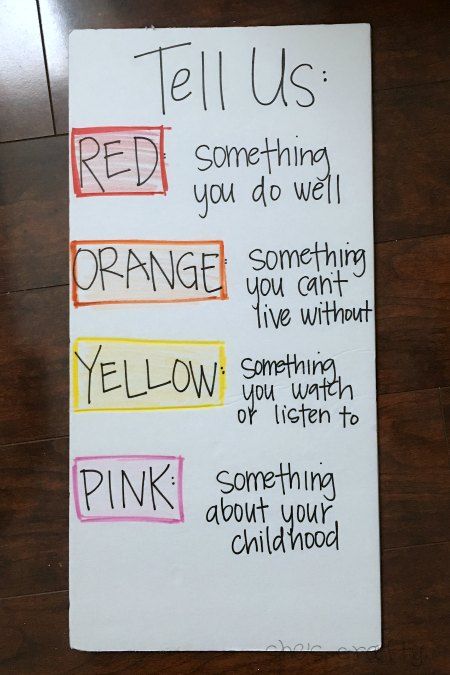 Tell Us:
RED: something
you do well
ORANGE: something
you can't
live without
YELLOW: something
you watch
or listen to
PINK: something
about your
childhood
she's crafty